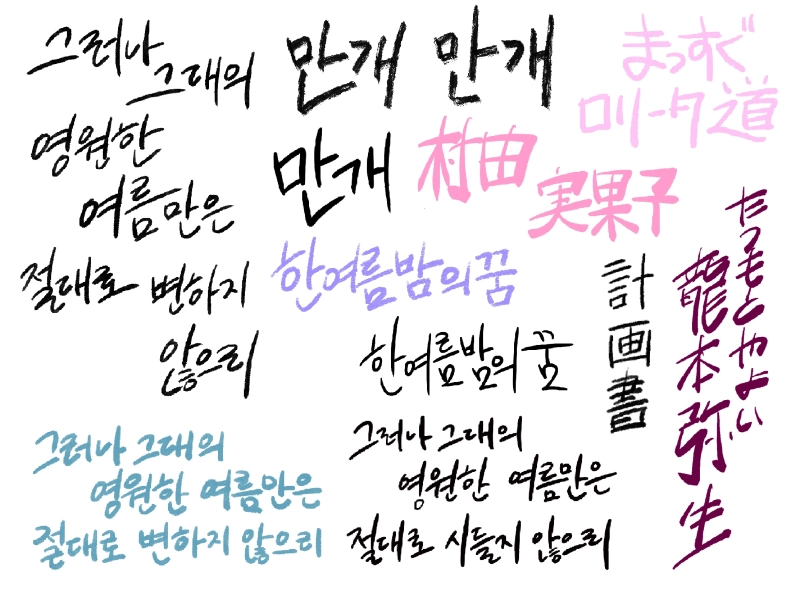 그러나
그대의
영원한
여름만은
절대로 변하지
않으리
만개 만개
만개
まっすぐ
ロリータ道
村田
実果子
한여름밤의꿈
한여름밤의꿈
計画書
たつもとやよい
龍本弥生
그러나 그대의
영원한 여름만은
절대로 변하지 않으리
그러나 그대의
영원한 여름만은
절대로 시들지 않으리